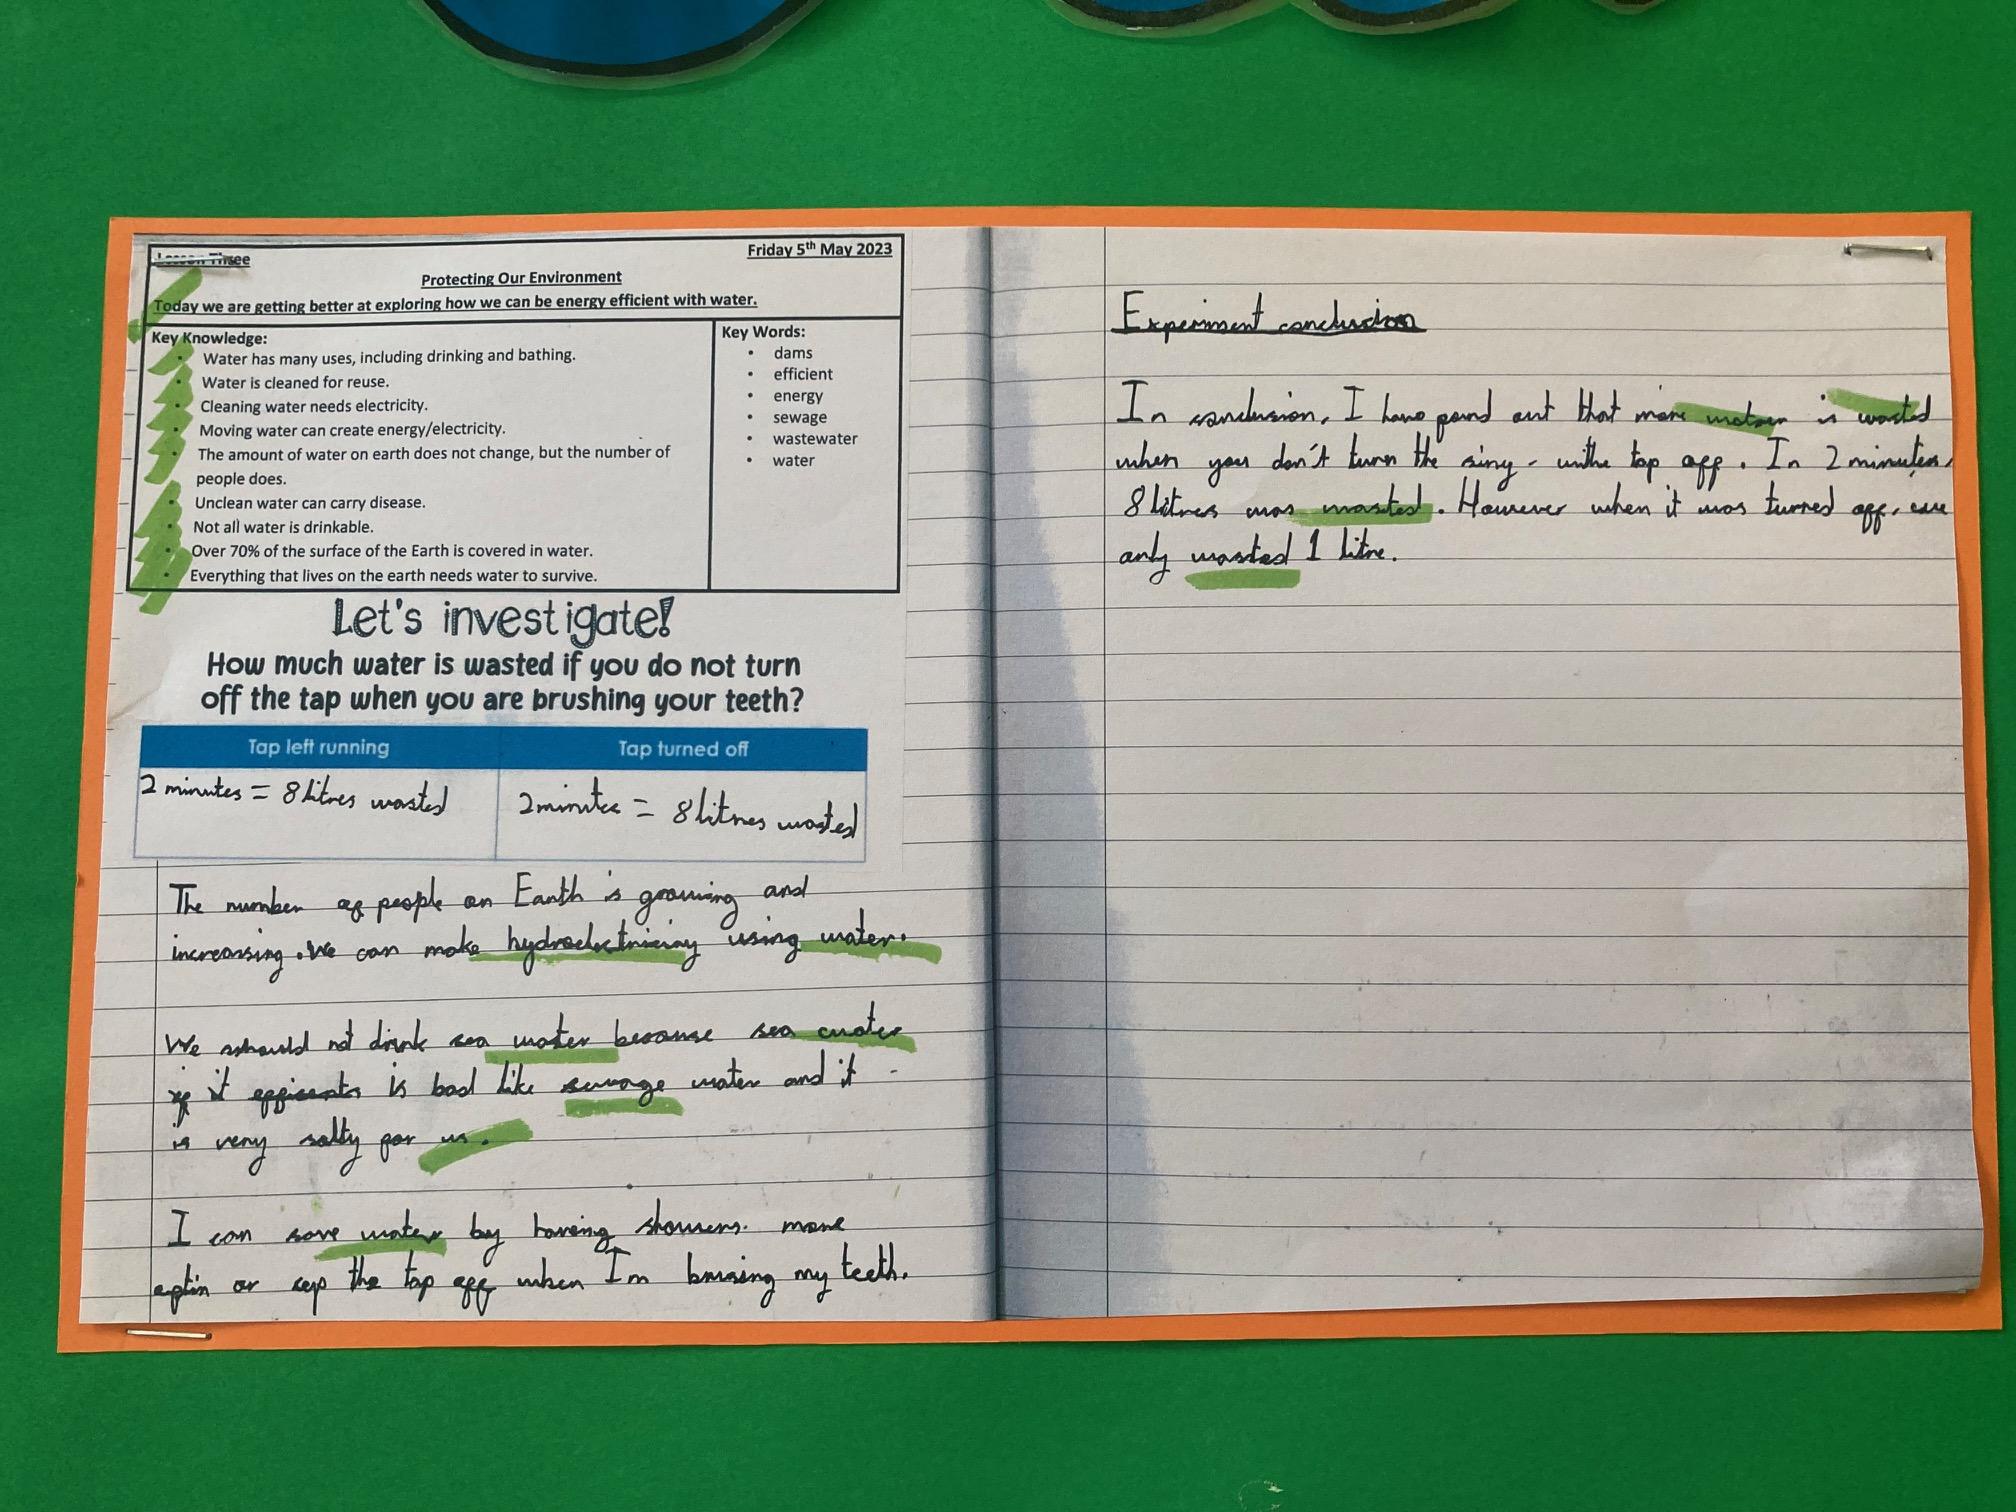 Lesson Three
Friday 5th May 2023
Protecting Our Environment
Today we are getting better at exploring how we can be energy efficient with water.
Key Knowledge:
• Water has many uses, including drinking and bathing.
• Water is cleaned for reuse.
• Cleaning water needs electricity.
• Moving water can create energy/electricity.
• The amount of water on earth does not change, but the number of
people does.
• Unclean water can carry disease.
• Not all water is drinkable.
• Over 70% of the surface of the Earth is covered in water.
• Everything that lives on the earth needs water to survive.
Key Words:
• dams
• efficient
• energy
• sewage
• wastewater
• water
Let's investigate!
How much water is wasted if you do not turn
off the tap when you are brushing your teeth?
Tap left running
Tap turned off
2 minutes = 8 litres wasted
2 minutes = 8 litres wasted
The number of people on Earth is growing and
increasing. We can make using water.
We should not drink sea water because sea water
if it is bad like sewage water and it
is very salty for us.
I can save water by having showers more
or the tap off when I'm my teeth.
Experiment conclusion
In conclusion, I have found out that more water is wasted
when you don't turn the the tap off. In 2 minutes,
8 litres was wasted. However when it was turned off, we
only wasted 1 litre.